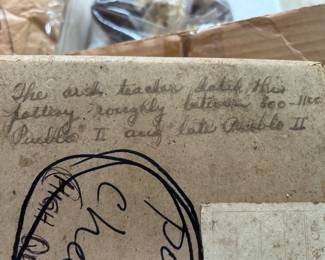 The arch teacher dates this
pottery roughly between 800-1100
Pueblo I and late Pueblo II
HIGH
Che
Po